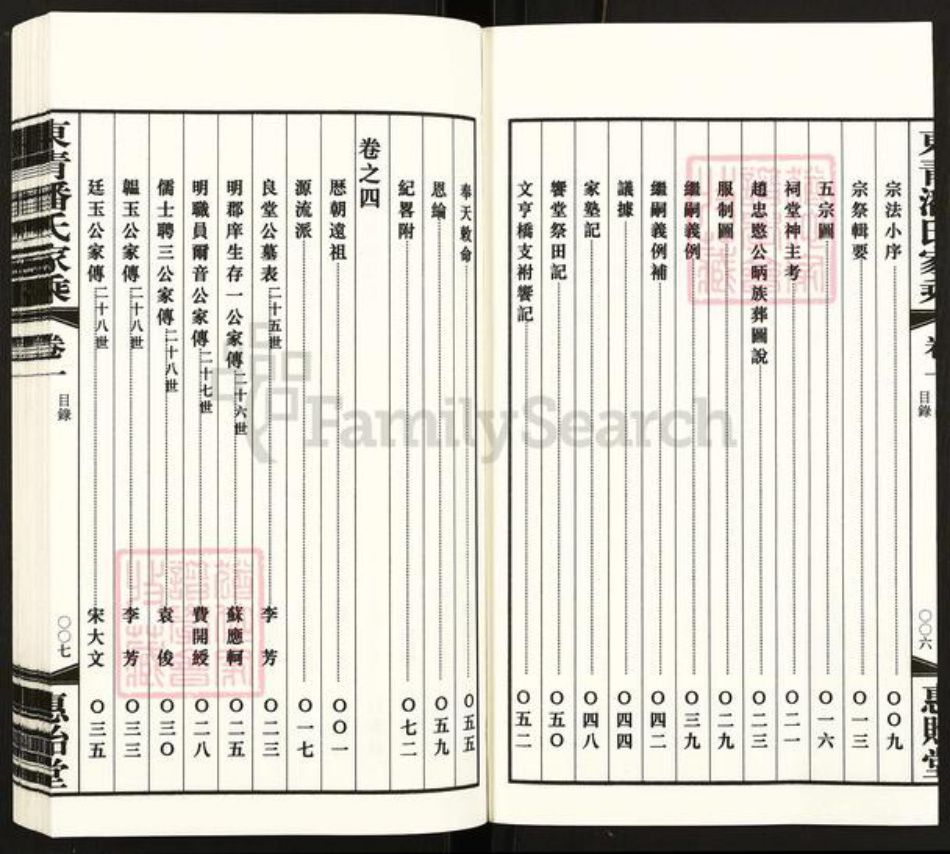 東青潘氏家乘
卷一
目錄
〇〇六
惠貽堂
宗法小序 〇〇九
宗祭輯要 〇一三
五宗圖 〇一六
祠堂神主考 〇二一
趙忠愍公昞族葬圖說 〇二三
服制圖 〇二九
繼嗣義例 〇三九
繼嗣義例補 〇四二
議據 〇四四
家塾記 〇四八
饗堂祭田記 〇五〇
文亨橋支祔饗記 〇五二
奉天敕命 〇五五
恩綸 〇五九
紀畧附 〇七二
卷之四
歷朝遠祖 〇〇一
源流派 〇一七
良堂公墓表 二十五世 李芳 〇二三
明郡庠生存一公家傳 二十六世 蘇應軻 〇二五
明職員爾音公家傳 二十七世 費開綬 〇二八
儒士聘三公家傳 二十八世 袁俊 〇三〇
韞玉公家傳 二十八世 李芳 〇三三
廷玉公家傳 二十八世 宋大文 〇三五
東青潘氏家乘
卷一
目錄
〇〇七
惠貽堂
FamilySearch